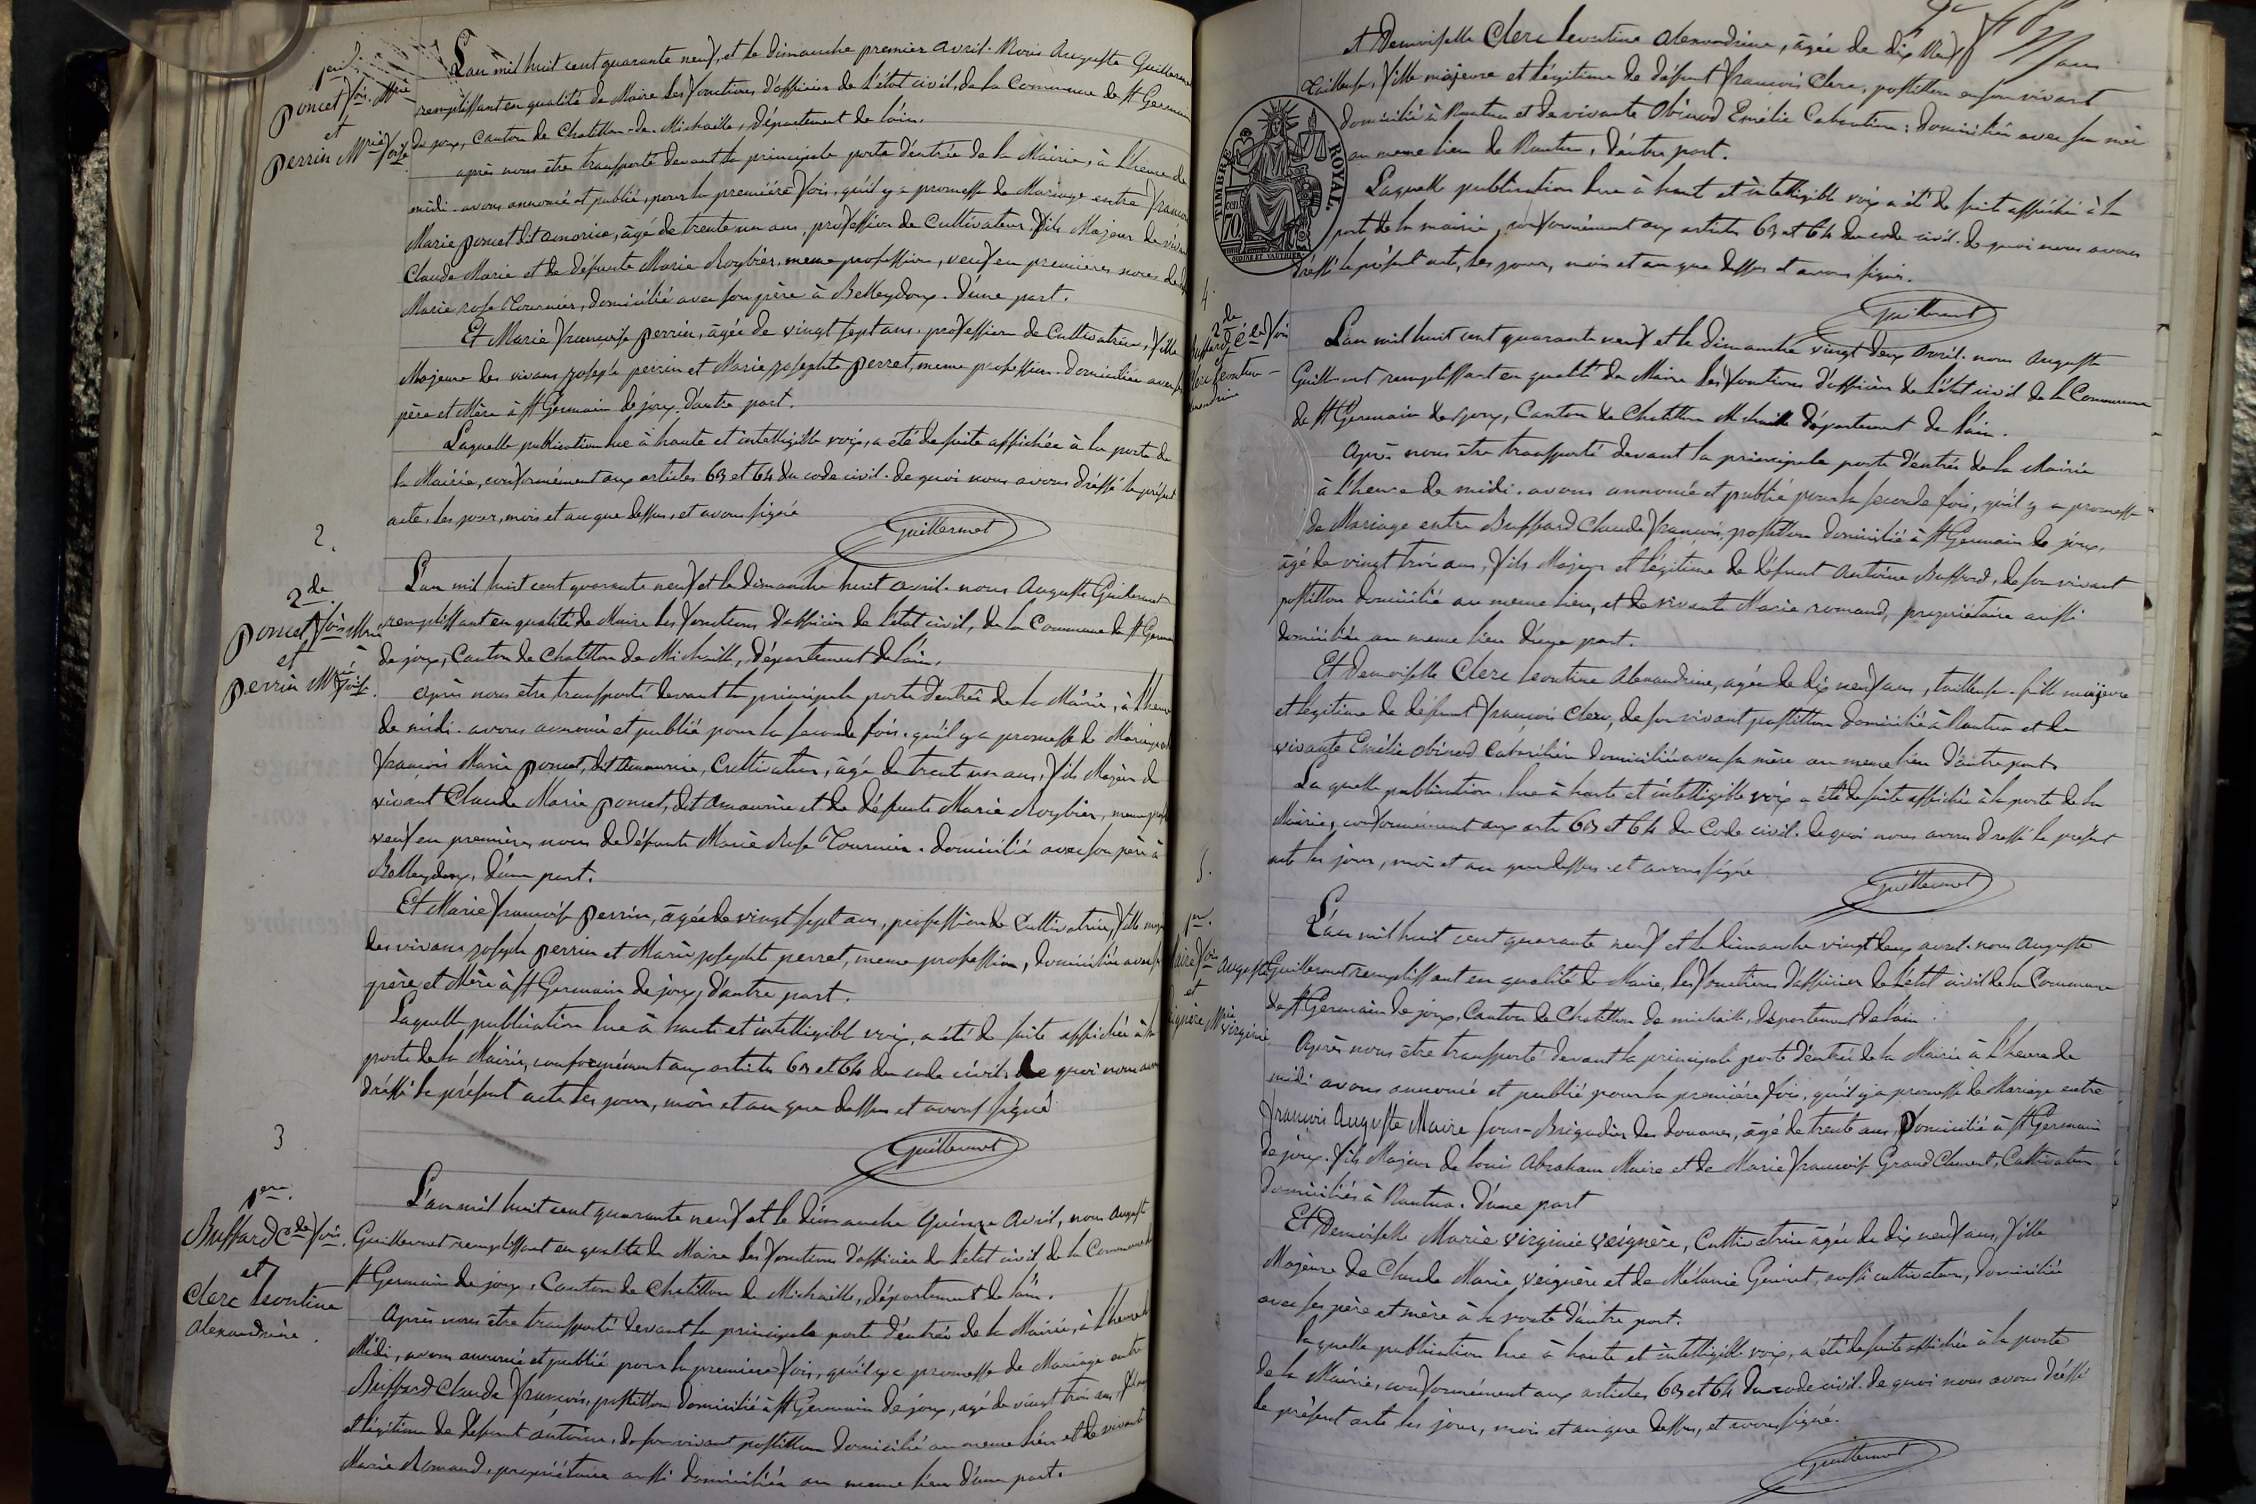 1ere
Poncet fois Mrie
et
Perrin Mrie foise
L'an mil huit cent quarante neuf, et le dimanche premier avril. Nous Auguste Guillermet
remplissant en qualité de Maire les fonctions d'officier de l'état civil, de la Commune de St Germain
de joux, Canton de Chatillon-de-Michaille, département de l'ain.
après nous être transporté devant la principale porte d'entrée de la Mairie, à l'heure de
midi. avons annoncé et publié, pour la première fois, qu'il y a promesse de Mariage entre françois
Marie Poncet dit amorice, âgé de trente un ans, profession de Cultivateur, fils Majeur de vivant
Claude Marie et de défunte Marie Roybier, meme profession, veuf en premières noces de
Marie rose Tournier, domicilié avec son père à Belleydoux. d'une part.
Et Marie françoise Perrin, âgée de vingt sept ans, profession de Cultivatrice, fille
Majeure des vivans joseph perrin et Marie josephte Perret, meme profession. domiciliée avec ses
père et Mère à St Germain de joux. d'autre part.
Laquelle publication lue à haute et intelligible voix, a été de suite affichée à la porte de
la Mairie, conformément aux articles 63 et 64 du code civil. de quoi nous avons dréssé le présent
acte, les jour, mois et an que dessus, et avons signé
Guillermet
2.
2de
Poncet fois Mrie
et
Perrin Mrie foise
L'an mil huit cent quarante neuf et le dimanche huit avril. nous Auguste Guillermet
remplissant en qualité de Maire les fonctions d'officier de l'état civil, de la Commune de St Germain
de joux, Canton de Chatillon de Michaille, département de l'ain.
après nous être transporté devant la principale porte d'entrée de la Mairie, à l'heure
de midi. avons annoncé et publié pour la seconde fois. qu'il y a promesse de Mariage
françois Marie Poncet, dit Amaurice, Cultivateur, âgé de trente un ans, fils Majeur de
vivant Claude Marie Poncet, dit amaurice et de défunte Marie Roybier, meme
veuf en premières noces de défunte Marie Rose Tournier. domicilié avec son père à
Belleydoux, d'une part.
Et Marie françoise Perrin, âgée de vingt sept ans, profession de Cultivatrice, fille
des vivans joseph Perrin et Marie josephte perret, meme profession, domiciliée avec
père et Mère à St Germain de joux, d'autre part.
Laquelle publication lue à haute et intelligible voix, a été de suite affichée à la
porte de la Mairie, conformément aux articles 63 et 64 du code civil. de quoi nous avons
dréssé le présent acte les jour, mois et an que dessus et avons signé
Guillermet
3
1ere.
Buffard Cde fois.
et
Clerc Leontine
alexandrine.
L'an mil huit cent quarante neuf et le dimanche quinze avril, nous auguste
Guillermet remplissant en qualité de Maire les fonctions d'officier de l'état civil de la Commune de
St Germain de joux, Canton de Chatillon de Michaille, département de l'ain.
après nous être transporté devant la principale porte d'entrée de la Mairie, à l'heure de
Midi, avons annoncé et publié pour la première fois, qu'il y a promesse de Mariage entre
Buffard Claude françois, postillon domicilié à St Germain de joux, agé de vingt trois ans,
et légitime de défunt antoine, de son vivant postillon domicilié au meme lieu et de vivante
Marie Romand, propriétaire aussi domiciliée au meme lieu d'une part.
et Demoiselle Clerc Leontine alexandrine, âgée de dix neuf ans
tailleuse, fille majeure et légitime de défunt françois Clerc, postillon en son vivant
domicilié à Nantua et de vivante Obinod Emélie domiciliée avec sa mère
au meme lieu de Nantua, d'autre part.
TIMBRE ROYAL.
70
Laquelle publication lue à haute et intelligible voix a été de suite affichée à la
porte de la mairie, conformément aux articles 63 et 64 du code civil. de quoi nous avons
dréssé le présent acte, les jour, mois et an que dessus et avons signé.
Guillermet
4.
2de
Buffard Cde fois
Clerc Leontine
alexandrine
L'an mil huit cent quarante neuf et le dimanche vingt deux avril. nous auguste
Guillermet remplissant en qualité de Maire les fonctions d'officier de l'état civil de la Commune
de St Germain de joux, Canton de Chatillon Michaille département de l'ain.
Après nous être transporté devant la principale porte d'entrée de la Mairie
à l'heure de midi. avons annoncé et publié pour la seconde fois, qu'il y a promesse
de Mariage entre Buffard Claude françois, postillon domicilié à St Germain de joux,
âgé de vingt trois ans, fils Majeur et légitime de défunt antoine Buffard, de son vivant
postillon domicilié au meme lieu, et de vivante Marie romand, propriétaire aussi
domiciliée au meme lieu d'une part.
Et Demoiselle Clerc Leontine Alexandrine, agée de dix neuf ans, tailleuse. fille majeure
et légitime de défunt françois Clerc, de son vivant postillon domicilié à Nantua et de
vivante Emélie obinod domiciliée avec sa mère au meme lieu d'autre part.
La quelle publication. lue à haute et intelligible voix a été de suite affichée à la porte de la
Mairie, conformément aux arts 63 et 64 du Code civil. de quoi nous avons dressé le présent
acte les jour, mois et an que dessus. et avons signé
Guillermet
5.
1ere.
Maire fois Auguste
et
Veignère Mrie
virginie
L'an mil huit cent quarante neuf et le dimanche vingt deux avril. nous auguste
Guillermet remplissant en qualité de Maire, les fonctions d'officier de l'état civil de la Commune
de St Germain de joux, Canton de Chatillon de michaille, département de l'ain.
Après nous être transporté devant la principale porte d'entrée de la Mairie à l'heure de
midi avons annoncé et publié pour la première fois, qu'il y a promesse de Mariage entre
françois Auguste Maire sous-Brigadier des douanes, âgé de trente ans, Domicilié à St Germain
de joux. fils Majeur de louis Abraham Maire et de Marie françoise Grand Clement, Cultivateurs
domiciliés à Nantua. d'une part
Et Demoiselle Marie virginie veignère, Cultivatrice âgée de dix neuf ans, fille
Majeure de Claude Marie veignère et de Mélanie Genivet, aussi cultivateurs, domiciliée
avec ses père et mère à la voute d'autre part.
laquelle publication lue à haute et intelligible voix, a été de suite affichée à la porte
de la Mairie, conformément aux articles 63 et 64 du code civil. de quoi nous avons dréssé
le présent acte les jour, mois et an que dessus, et avons signé.
Guillermet